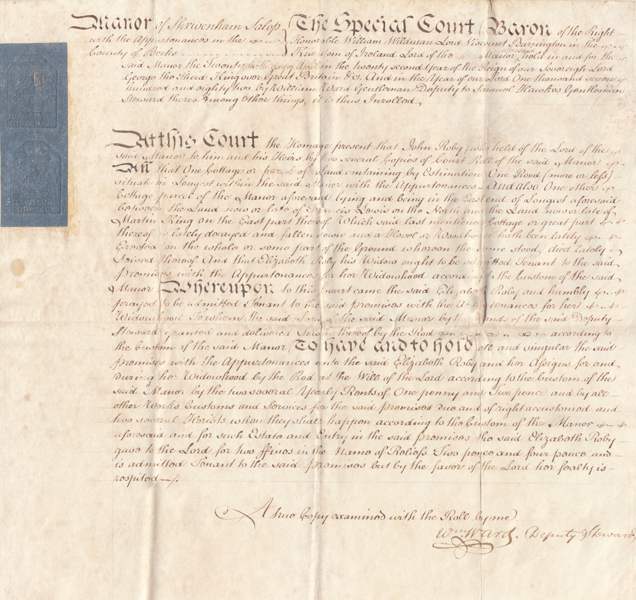 Manor of Shrivenham Salop The Special Court Baron of the Right
with the Appurtenances in the Honorable William Wildman Lord Viscount Barrington in the
County of Berks Kingdom of Ireland Lord of the Manor held in and for the
said Manor the day in the twenty second Year of the Reign of our Sovereign Lord
George the Third King over Great Britain &c. And in the Year of our Lord One thousand seven
hundred and eighty two by William Ward Gentleman Deputy to Samuel Hawkes Gentleman
Steward there Among other things, it is thus Inrolled
At this Court the Homage present that John Roby held of the Lord of the
said Manor to him and his Heirs by two several Copies of Court Roll of the said Manor
All that One Cottage or parcel of Land containing by Estimation One Rood (more or less)
situate in Longcot within the said Manor with the Appurtenances And also One other
Cottage parcel of the Manor aforesaid lying and being in the East end of Longcot aforesaid
between the Land now or late of Lewis on the North and the Land now or late of
Martin King on the East part thereof Which said last mentioned Cottage or great part
thereof lately decayed and fallen down and a Hovel or hath been lately
Erected on the whole or some part of the Ground whereon the same stood, died lately
Seized thereof And that Elizabeth Roby his Widow ought to be admitted Tenant to the said
Premises with the Appurtenances for her Widowhood according to the Custom of the said
Manor Whereupon to this Court came the said Elizabeth Roby and humbly
prayed to be admitted Tenant to the said premises with the Appurtenances for her
Widowhood To whom the said Lord of the said Manor by the said Deputy
Steward granted and delivered Seizin thereof by the Rod according to
the Custom of the said Manor To have and to hold all and singular the said
premises with the Appurtenances unto the said Elizabeth Roby and her Assigns for and
during her Widowhood by the Rod at the Will of the Lord according to the Custom of the
said Manor by the two several Yearly Rents of One penny and Two pence and by all
other Works Customs and Services for the said premises due and of right accustomed and
two several Heriots when they shall happen according to the Custom of the Manor
aforesaid and for such Estate and Entry in the said premises the said Elizabeth Roby
gave to the Lord for two ffines in the Name of Relief Two pence and four pence and
is admitted Tenant to the said Premises but by the favor of the Lord her fealty is
respited
A true Copy examined with the Roll by me
Wm. Ward, Deputy Steward